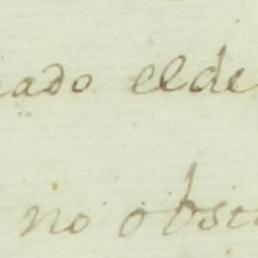 eado elde
no obsc